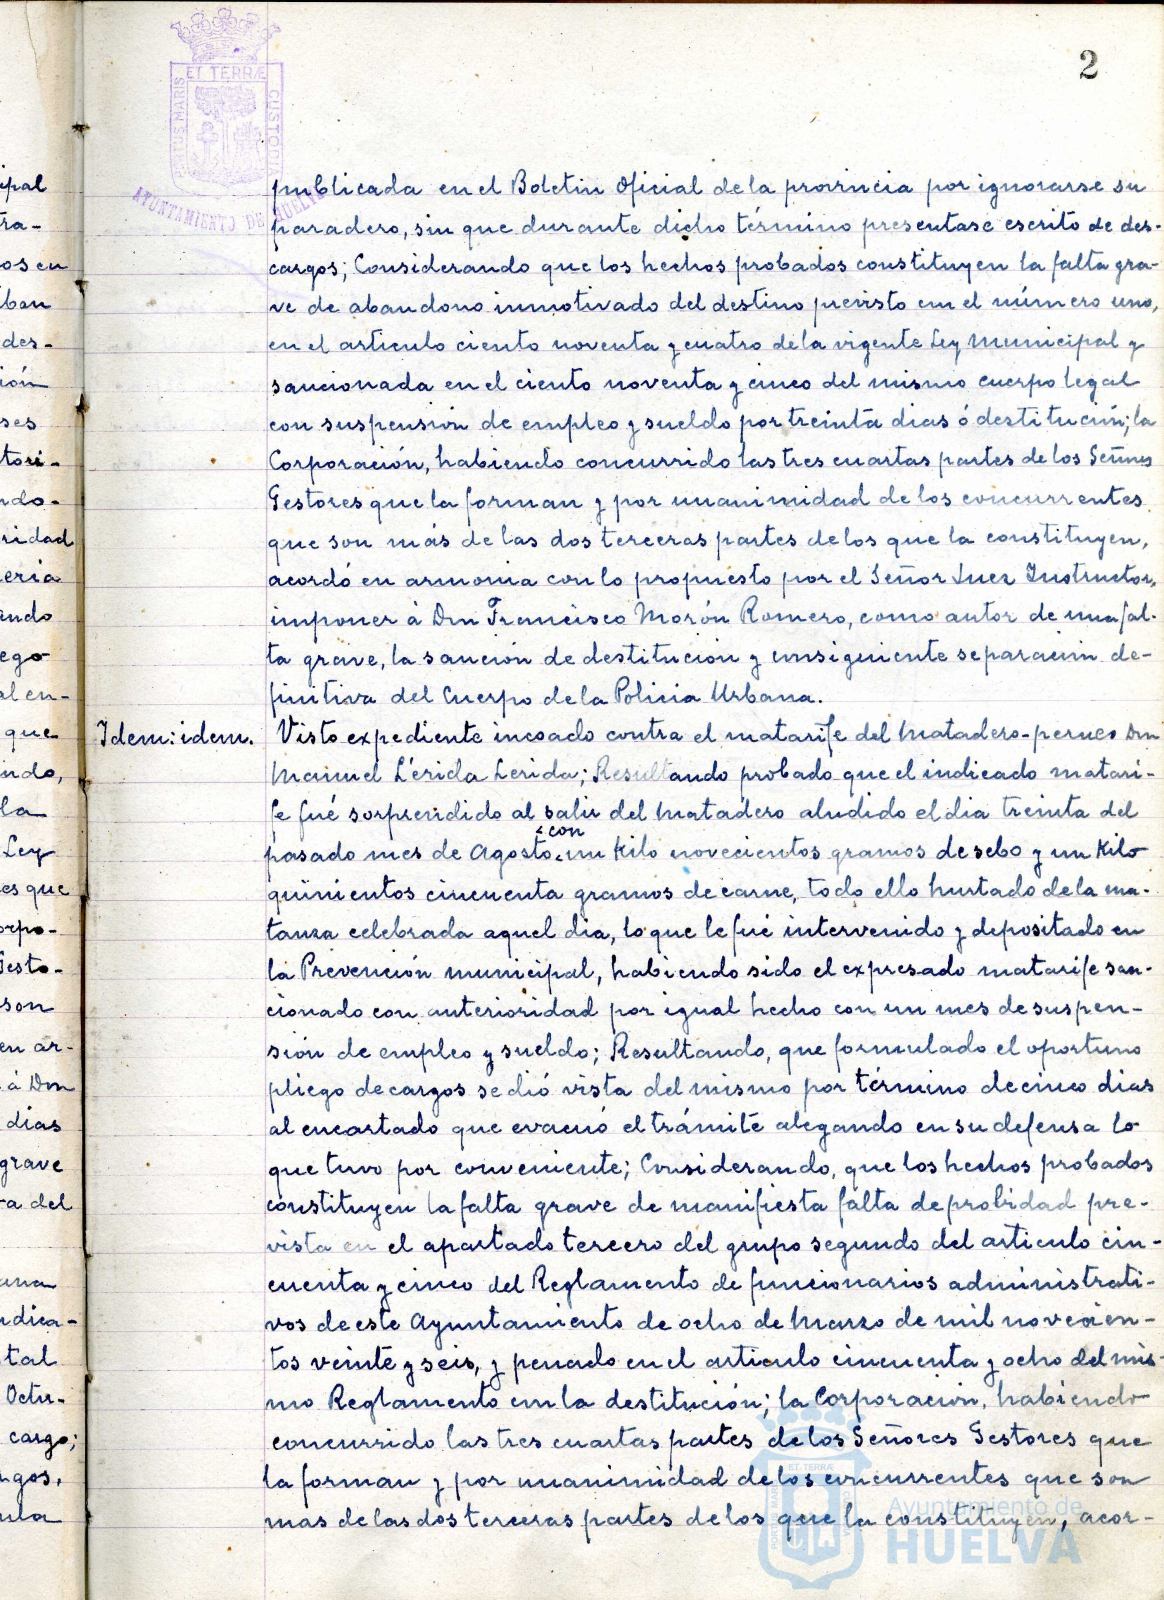 2
ET TERRÆ
PORTUS MARIS
CUSTODIA
AYUNTAMIENTO DE HUELVA
publicada en el Boletin Oficial de la provincia por ignorarse su
paradero, sin que durante dicho término presentase escrito de des-
cargos; Considerando que los hechos probados constituyen la falta gra-
ve de abandono inmotivado del destino previsto en el número uno,
en el articulo ciento noventa y cuatro de la vigente Ley Municipal y
sancionada en el ciento noventa y cinco del mismo cuerpo legal
con suspensión de empleo y sueldo por treinta dias ó destitución; la
Corporación, habiendo concurrido las tres cuartas partes de los Señores
Gestores que la forman y por unanimidad de los concurrentes
que son más de las dos terceras partes de los que la constituyen,
acordó en armonia con lo propuesto por el Señor Juez Instructor,
imponer á Don Francisco Morón Romero, como autor de una fal-
ta grave, la sanción de destitución y consiguiente separación de-
finitiva del Cuerpo de la Policia Urbana.
Idem: idem. Visto expediente incoado contra el matarife del Matadero-perneo Don
Manuel Lérida Lerida; Resultando probado que el indicado matari-
fe fué sorprendido al salir del Matadero aludido el dia treinta del
pasado mes de Agosto con un Kilo novecientos gramos de sebo y un Kilo
quinientos cincuenta gramos de carne, todo ello hurtado de la ma-
tanza celebrada aquel dia, lo que le fué intervenido y depositado en
la Prevención municipal, habiendo sido el expresado matarife san-
cionado con anterioridad por igual hecho con un mes de suspen-
sión de empleo y sueldo; Resultando, que formulado el oportuno
pliego de cargos se dió vista del mismo por término de cinco dias
al encartado que evacuó el trámite alegando en su defensa lo
que tuvo por conveniente; Considerando, que los hechos probados
constituyen la falta grave de manifiesta falta de probidad pre-
vista en el apartado tercero del grupo segundo del articulo cin-
cuenta y cinco del Reglamento de funcionarios administrati-
vos de este Ayuntamiento de ocho de Marzo de mil novecien-
tos veinte y seis, y penado en el articulo cincuenta y ocho del mis-
mo Reglamento con la destitución; la Corporación, habiendo
concurrido las tres cuartas partes de los Señores Gestores que
la forman y por unanimidad de los concurrentes que son
mas de las dos terceras partes de los que la constituyen, acor-
Ayuntamiento de
HUELVA